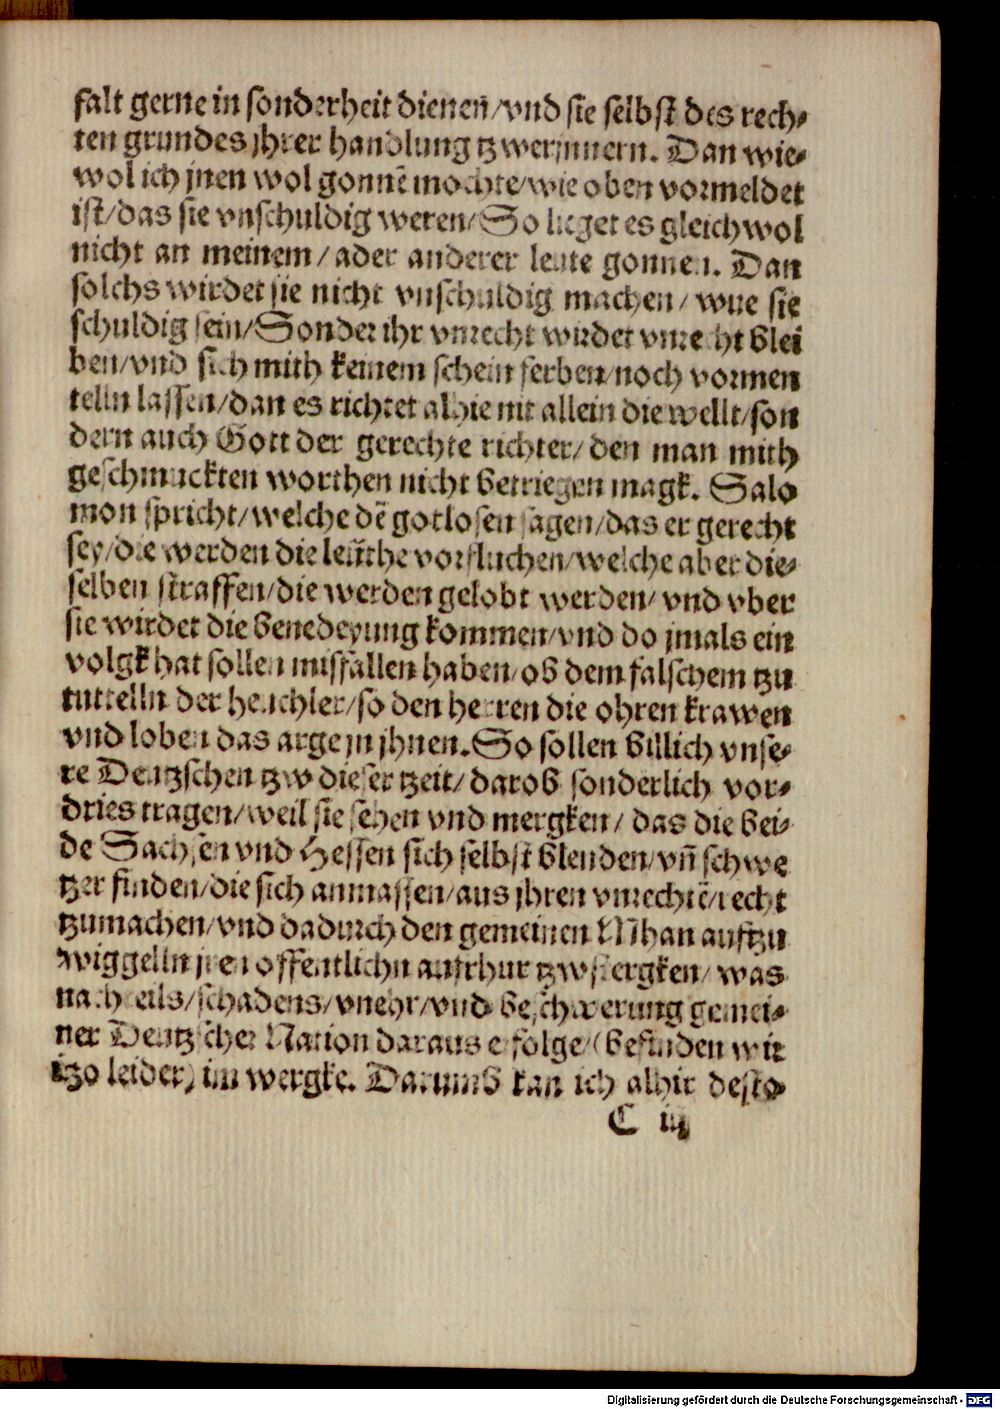 falt gerne in sonderheit dienen/vnd sie selbst des rech-
ten grundes jhrer handlung tzwerjnnern. Dan wie-
wol ich jnen wol gonnē mochte/wie oben vormeldet
ist/das sie vnschuldig weren/So lieget es gleichwol
nicht an meinem/ader anderer leute gonnen. Dan
solchs wirdet sie nicht vnschuldig machen/wue sie
schuldig sein/Sonder ihr vnrecht wirdet vnrecht blei
ben/vnd sich mith keinem schein ferben/noch vormen
telln lassen/dan es richtet alhie nit allein die wellt/son
dern auch Gott der gerechte richter/den man mith
geschmuckten worthen nicht betriegen magk. Salo
mon spricht/welche dē gotlosen sagen/das er gerecht
sey/die werden die leuthe vorfluchen/welche aber die-
selben straffen/die werden gelobt werden/vnd vber
sie wirdet die benedeyung kommen/vnd do jmals ein
volgk hat sollen missfallen haben/ob dem falschem tzu
tuttelln der heuchler/so den herren die ohren krawen
vnd loben das arge jn jhnen. So sollen billich vnse-
re Deutzschen tzw dieser tzeit/darob sonderlich vor-
dries tragen/weil sie sehen vnd mergken/das die bei-
de Sachsen vnd Hessen sich selbst blenden/vn̄ schwe
tzer finden/die sich anmassen/aus jhren vnrechtē/recht
tzumachen/vnd dadurch den gemeinen Mhan auftzu
wiggelln jren offentlichn aufrhur tzwstergken/was
nachteils/schadens/vnehr/vnd beschwerung gemei-
ner Deutzscher Nation daraus erfolge/(befinden wir
itzo leider) im wergke. Darumb kan ich alhir desto-
C iij
Digitalisierung gefördert durch die Deutsche Forschungsgemeinschaft - DFG